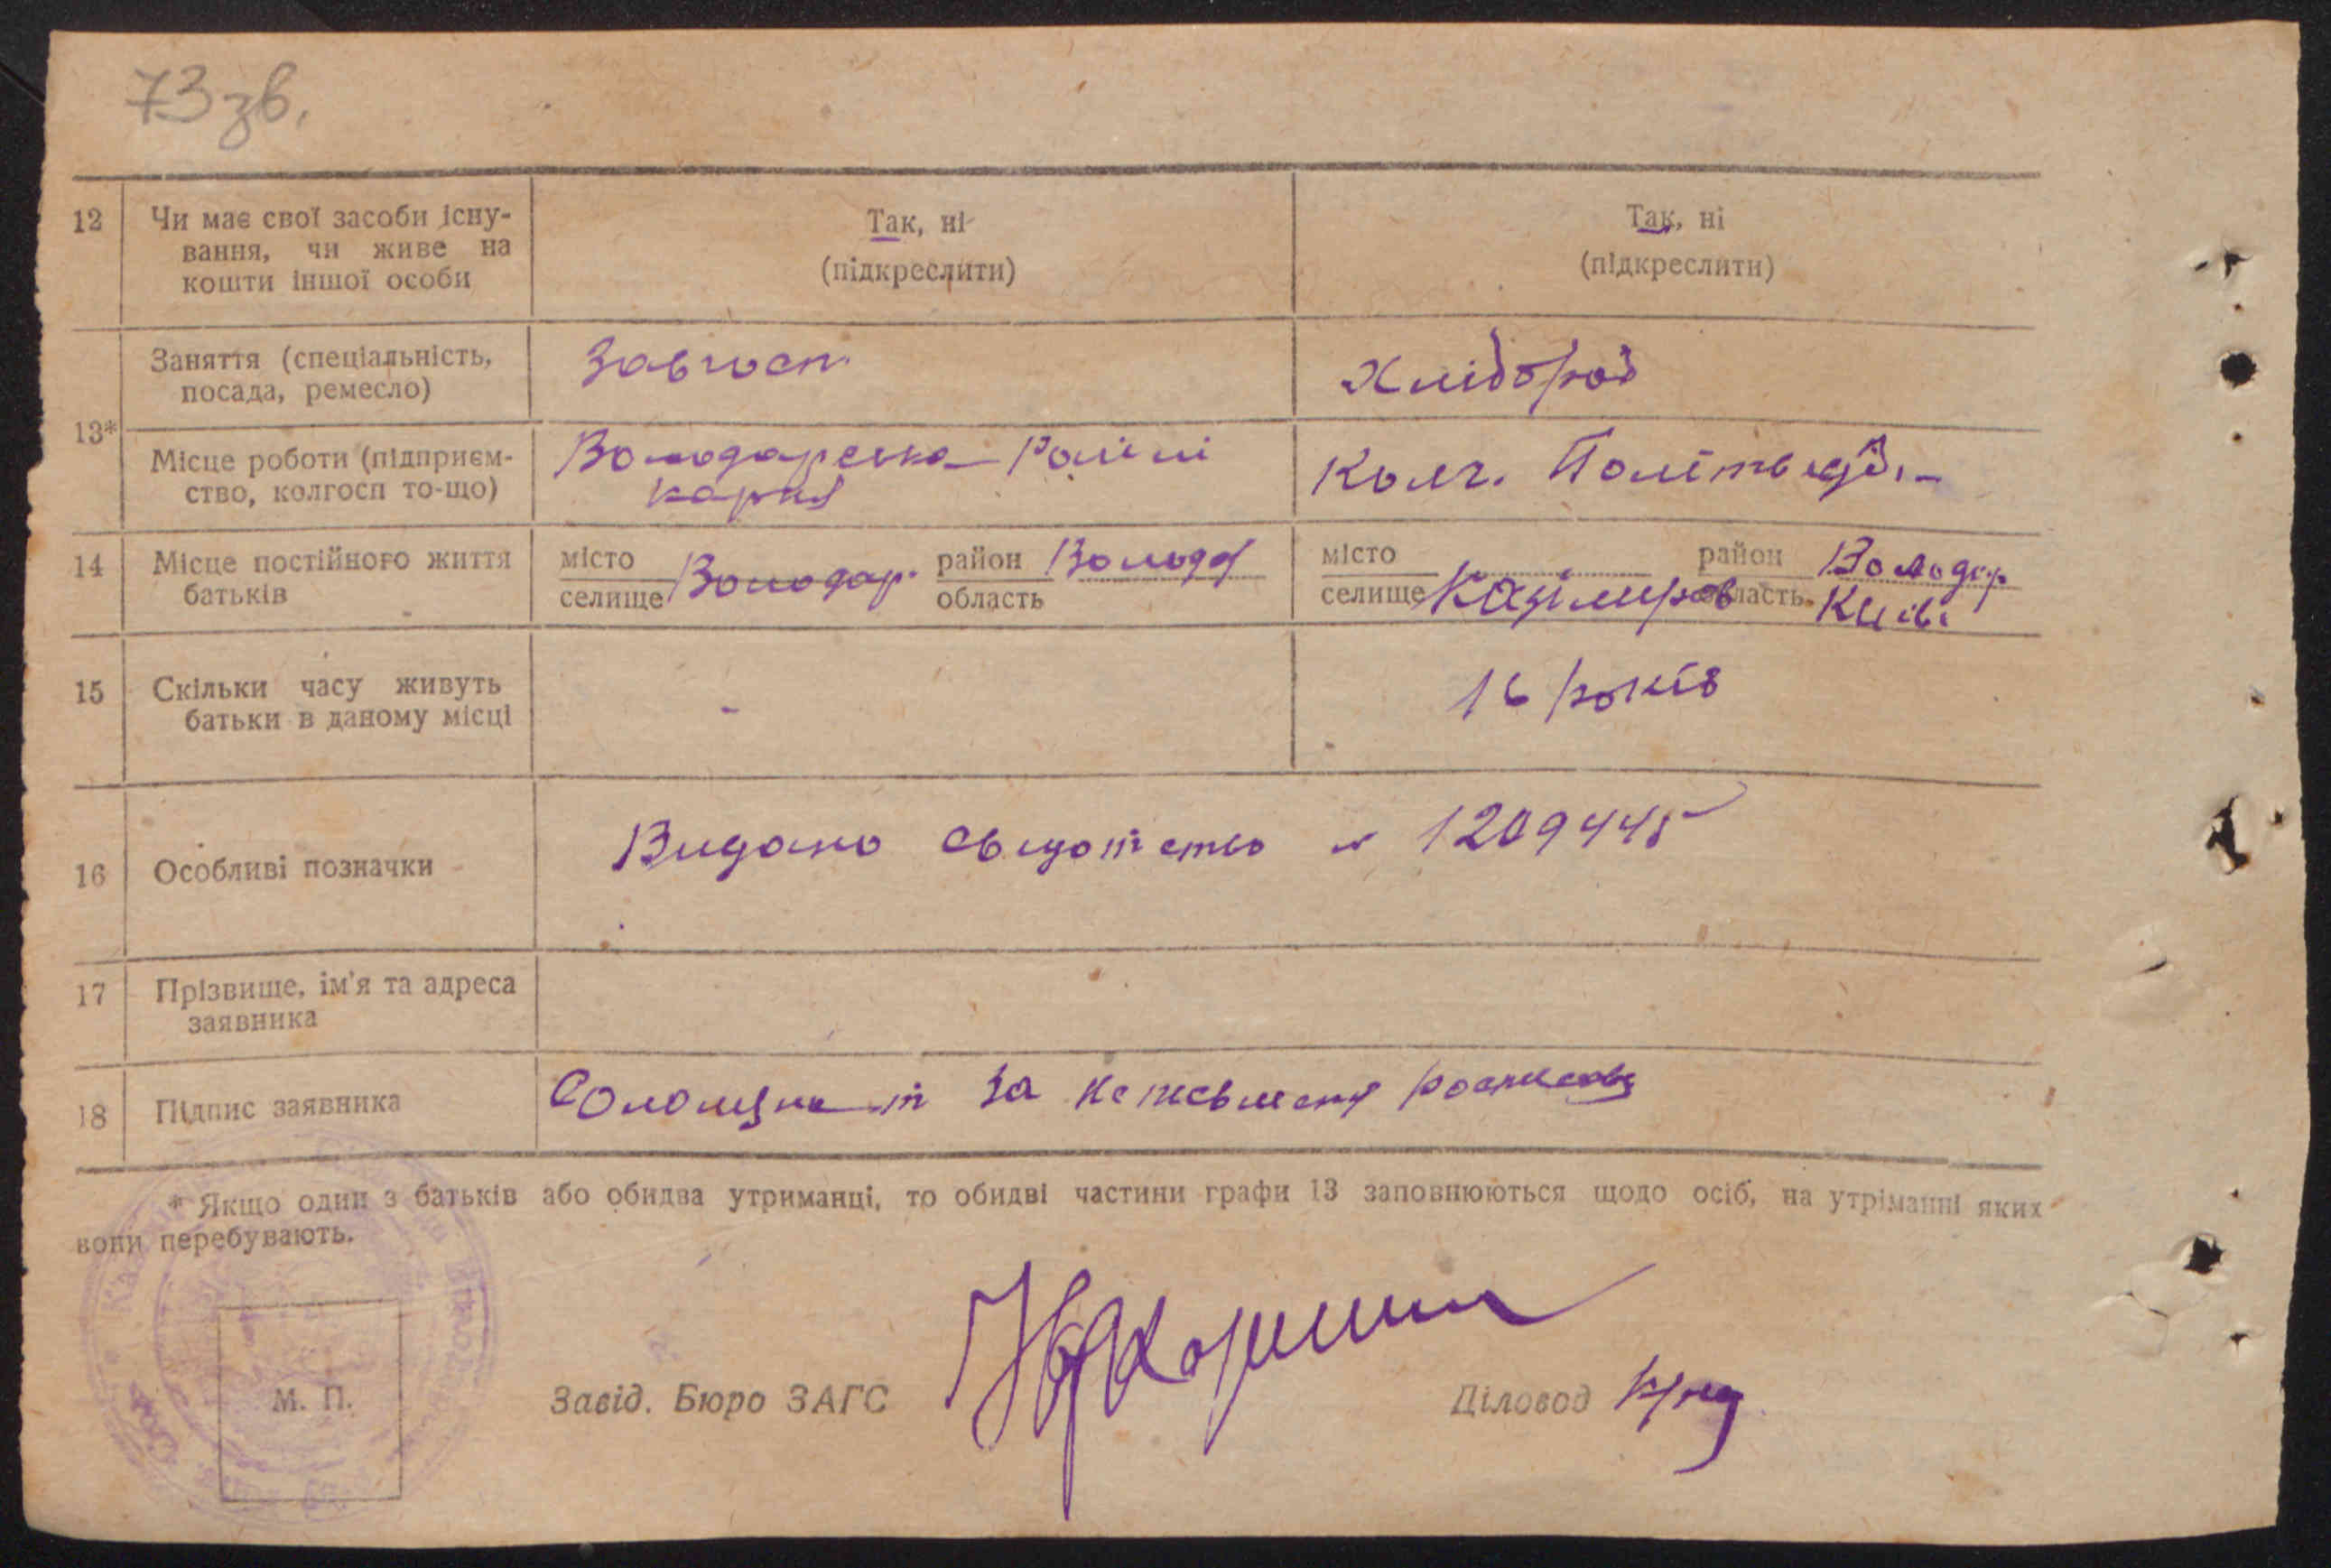 73 зв.
12 Чи має свої засоби існу-
вання, чи живе на
кошти іншої особи
Так, ні
(підкреслити)
Так, ні
(підкреслити)
13*
Заняття (спеціальність,
посада, ремесло)
Завгосп.
Хлібороб
Місце роботи (підприєм-
ство, колгосп то-що)
Володарська
Колг. Політвідд.
14 Місце постійного життя
батьків
місто
селище
Володар.
район Волод
область
місто
селище
Казімиров
район Володар
область Київ.
15 Скільки часу живуть
батьки в даному місці
-
16 років
16 Особливі позначки
Видано свідотство № 1209445
17 Прізвище, ім'я та адреса
заявника
18 Підпис заявника
за
* Якщо один з батьків або обидва утриманці, то обидві частини графи 13 заповнюються щодо осіб, на утріманні яких
вони перебувають.
М. П.
Завід. Бюро ЗАГС
Діловод